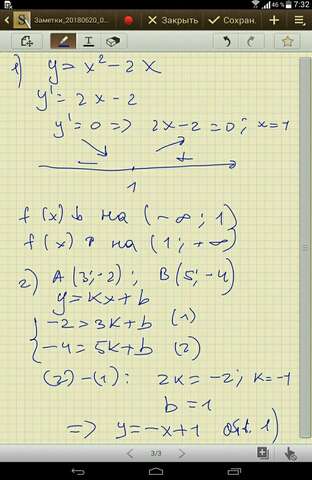 46 % 7:32
Заметки_20180620_0... Закрыть Сохран.
1) y = x² - 2x
y' = 2x - 2
y' = 0 => 2x - 2 = 0; x = 1
- +
1
f(x) ↓ на (-∞; 1)
f(x) ↑ на (1; +∞)
2) A(3; -2); B(5; -4)
y = kx + b
-2 = 3k + b (1)
-4 = 5k + b (2)
(2) - (1): 2k = -2; k = -1
b = 1
=> y = -x + 1 отв. 1)
3/3